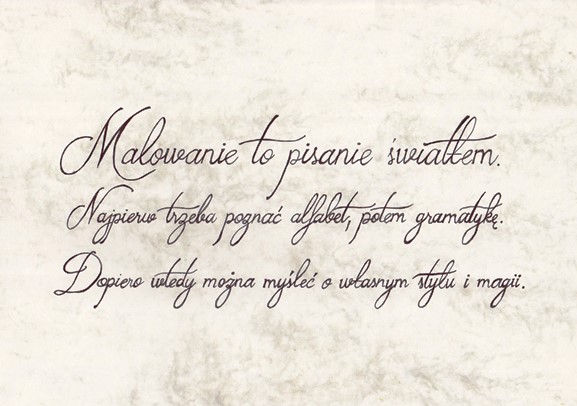 Malowanie to pisanie światłem.
Najpierw trzeba poznać alfabet, potem gramatykę.
Dopiero wtedy można myśleć o własnym stylu i magii.